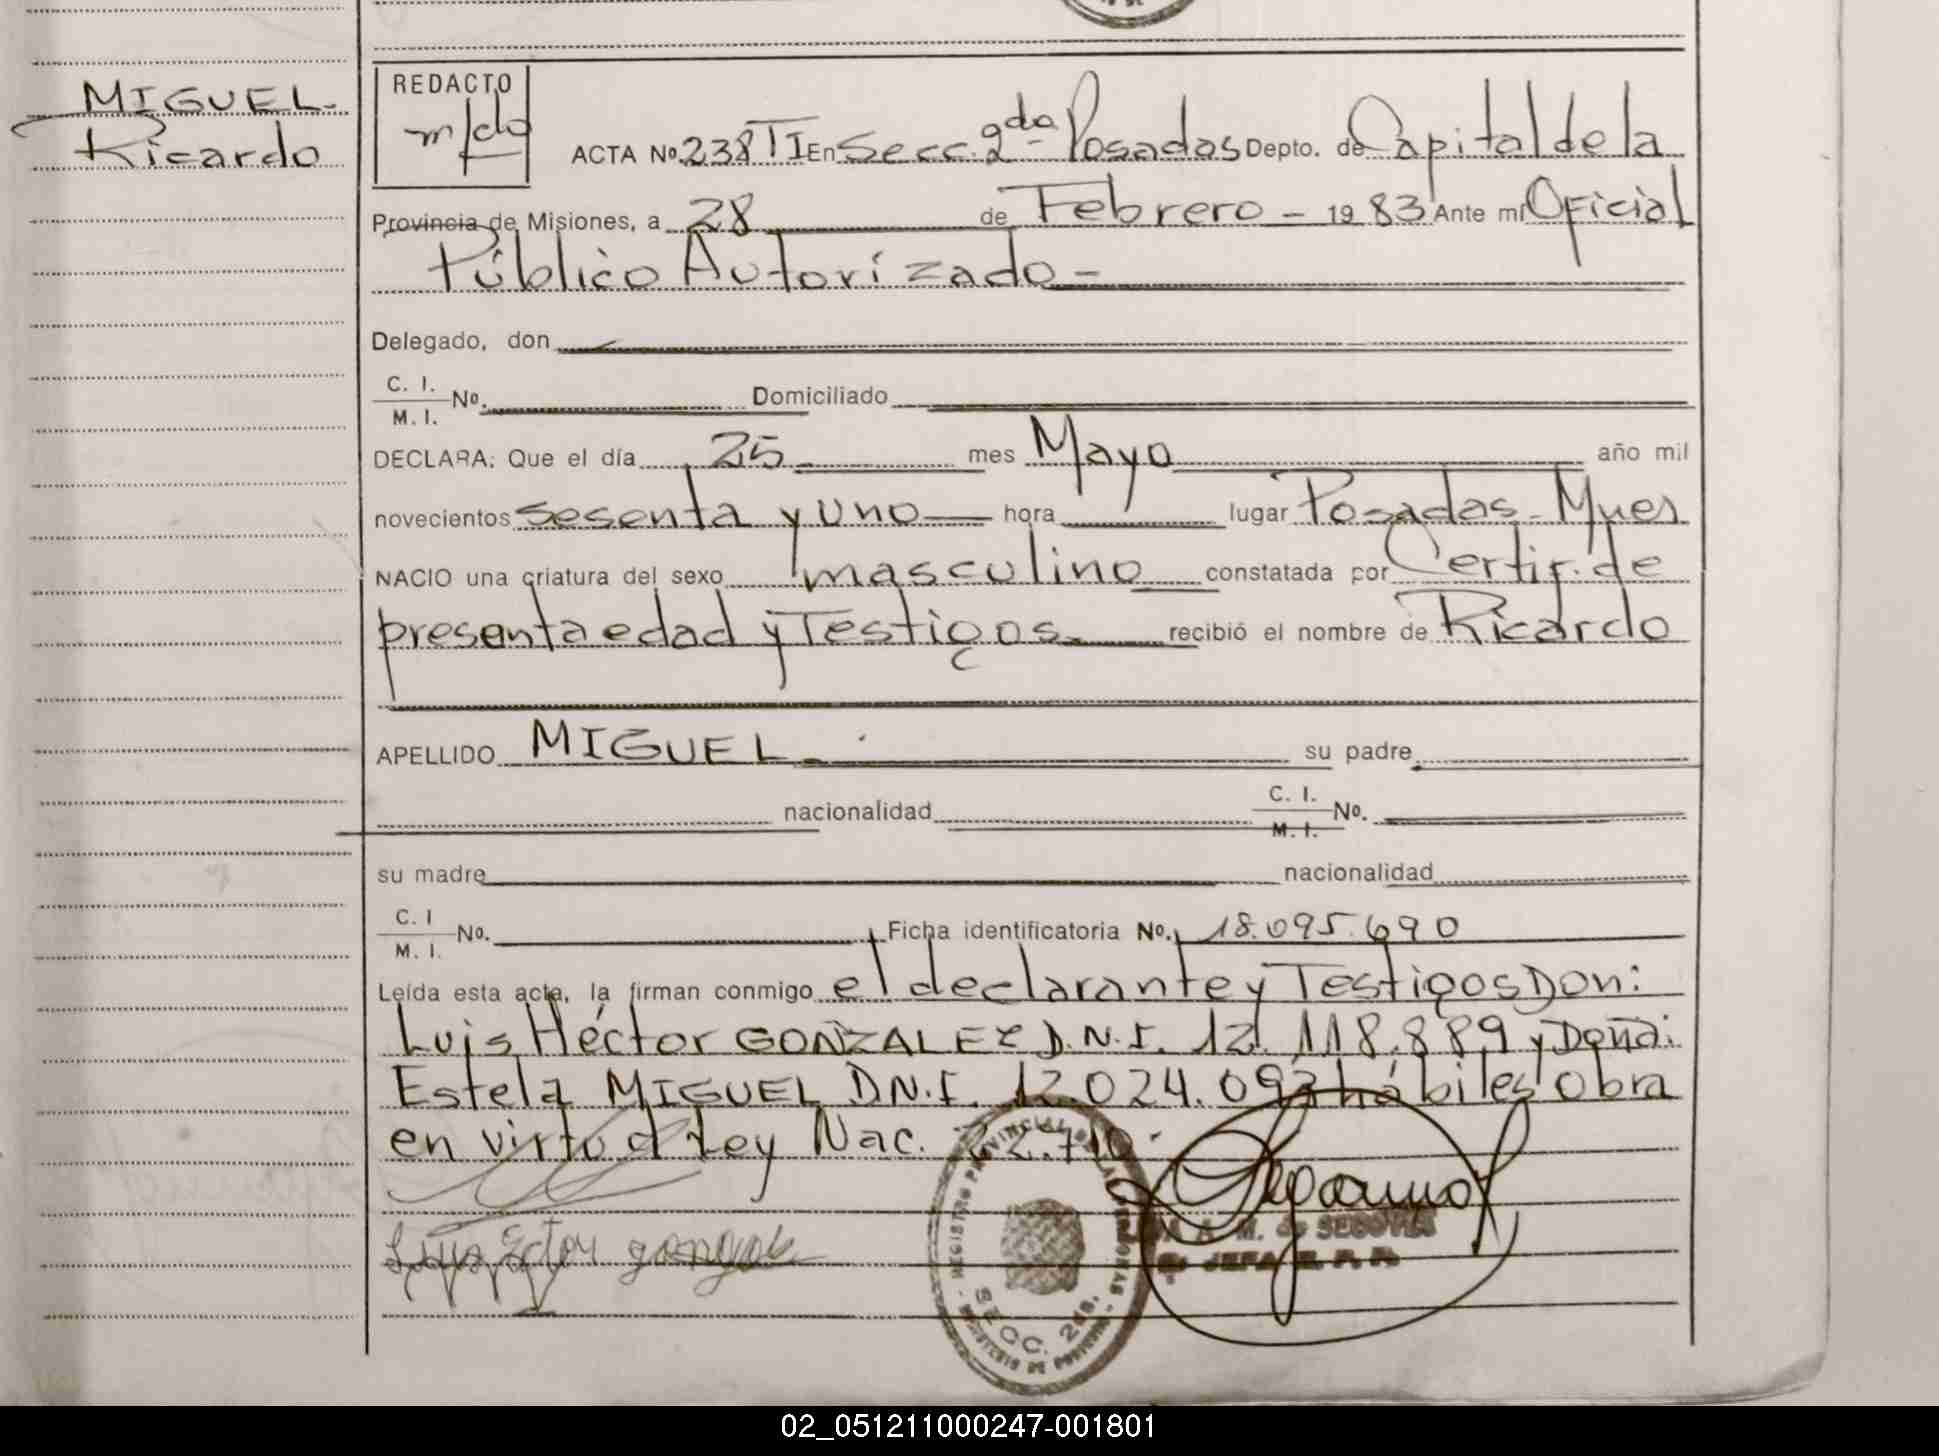 MIGUEL.
Ricardo
REDACTO
ACTA No. 238 TI En Secc. 2da Posadas Depto. de Capital de la
Provincia de Misiones, a 28 de Febrero - 19 83 Ante mi Oficial
Público Autorizado -
Delegado, don
C. I.
M. I. No. Domiciliado
DECLARA: Que el día 25 mes Mayo año mil
novecientos sesenta y uno hora lugar Posadas - Mnes
NACIO una criatura del sexo masculino constatada por Certif. de
presenta edad y Testigos. recibió el nombre de Ricardo
APELLIDO MIGUEL. su padre
nacionalidad C. I.
M. I. No.
su madre nacionalidad
C. I
M. I. No. Ficha identificatoria No. 18.095.690
Leída esta acta, la firman conmigo el declarante y Testigos Don:
Luis Héctor GONZALEZ D.N.I. 12.118.889 y Doña:
Estela MIGUEL D.N.I. 12.024.093 hábiles Obra
en virtud Ley Nac. 22.710.
REGISTRO PROVINCIAL DE LAS PERSONAS
SECC. 2da.
A. M. de SEGOVIA
JEFA R. P. P.
02_051211000247-001801